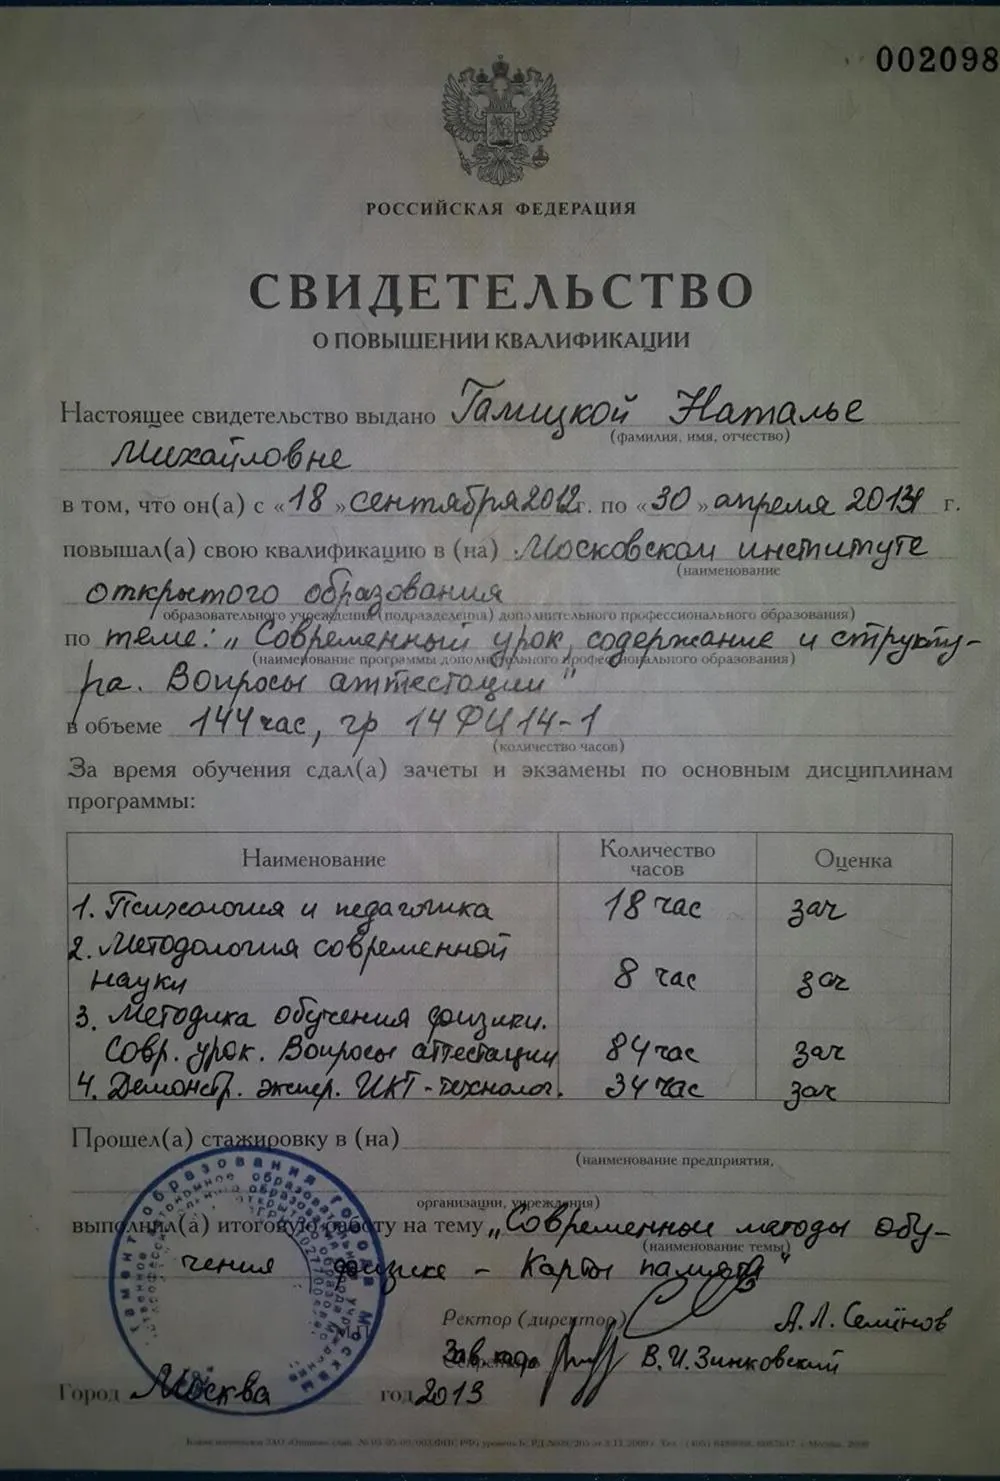 002098
РОССИЙСКАЯ ФЕДЕРАЦИЯ
СВИДЕТЕЛЬСТВО
О ПОВЫШЕНИИ КВАЛИФИКАЦИИ
Настоящее свидетельство выдано Галицкой Наталье
(фамилия, имя, отчество)
Михайловне
в том, что он(а) с «18» сентября 2012 г. по «30» апреля 2013 г.
повышал(а) свою квалификацию в (на) Московском институте
(наименование
открытого образования
образовательного учреждения (подразделения) дополнительного профессионального образования)
по теме: „Современный урок, содержание и структу-
(наименование программы дополнительного профессионального образования)
ра. Вопросы аттестации"
в объеме 144 час, гр 14 ФЦ 14-1
(количество часов)
За время обучения сдал(а) зачеты и экзамены по основным дисциплинам
программы:
Наименование Количество часов Оценка
1. Психология и педагогика 18 час зач
2. Методология современной
науки 8 час зач
3. Методика обучения физики.
Совр. урок. Вопросы аттестации 84 час зач
4. Демонстр. экспер. ИКТ-технолог. 34 час зач
Прошел(а) стажировку в (на)
(наименование предприятия,
организации, учреждения)
выполнил(а) итоговую работу на тему „Современные методы обу-
(наименование темы)
чения физике - Карты памяти"
Ректор (директор) А.Л. Семёнов
Зав. В.И. Зинковский
Город Москва год 2013